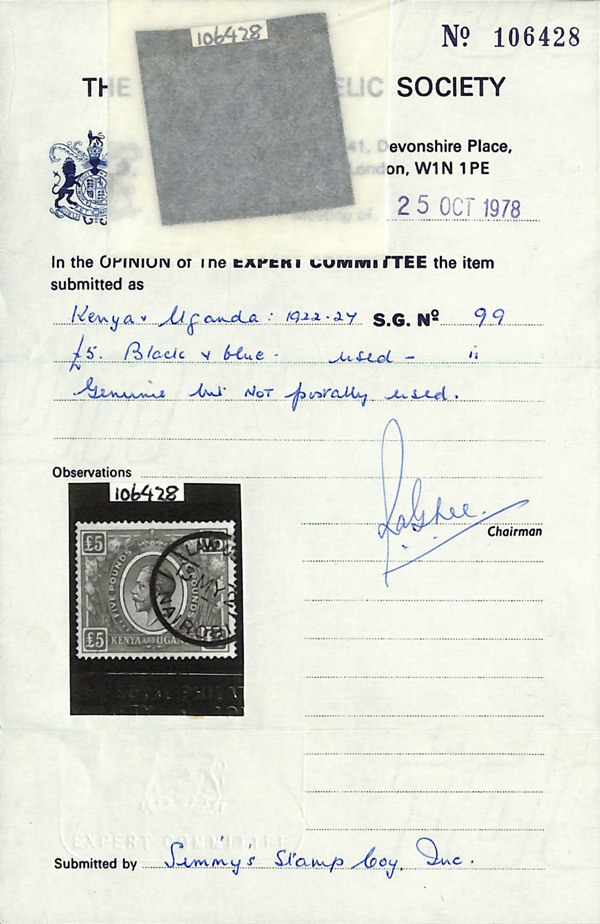 Nº 106428
106428
TH LIC SOCIETY
41, Devonshire Place,
London, W1N 1PE
Meeting of 25 OCT 1978
In the OPINION of The EXPERT COMMITTEE the item
submitted as
Kenya & Uganda: 1922-27 S.G. Nº 99
£5. Black & blue - used - "
Genuine but NOT postally used.
Observations
106428
Chairman
£5
FIVE POUNDS
POUNDS
LAW
MY
NAIROBI
£5 KENYA AND UGAN
ROYAL PHILAT
EXPERT COMMITTEE
Submitted by Simmy's Stamp Coy, Inc.